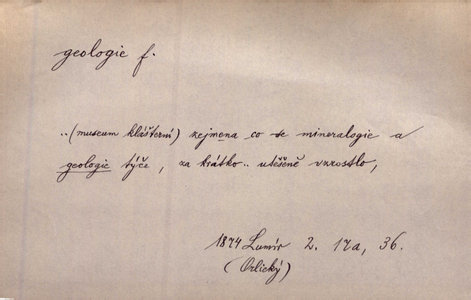 geologie f.
..(museum klášterní) zejmena co se mineralogie a
geologie týče, za krátko.. utěšeně vzrostlo,
1874 Lumír 2. 17a, 36.
(Orlický)